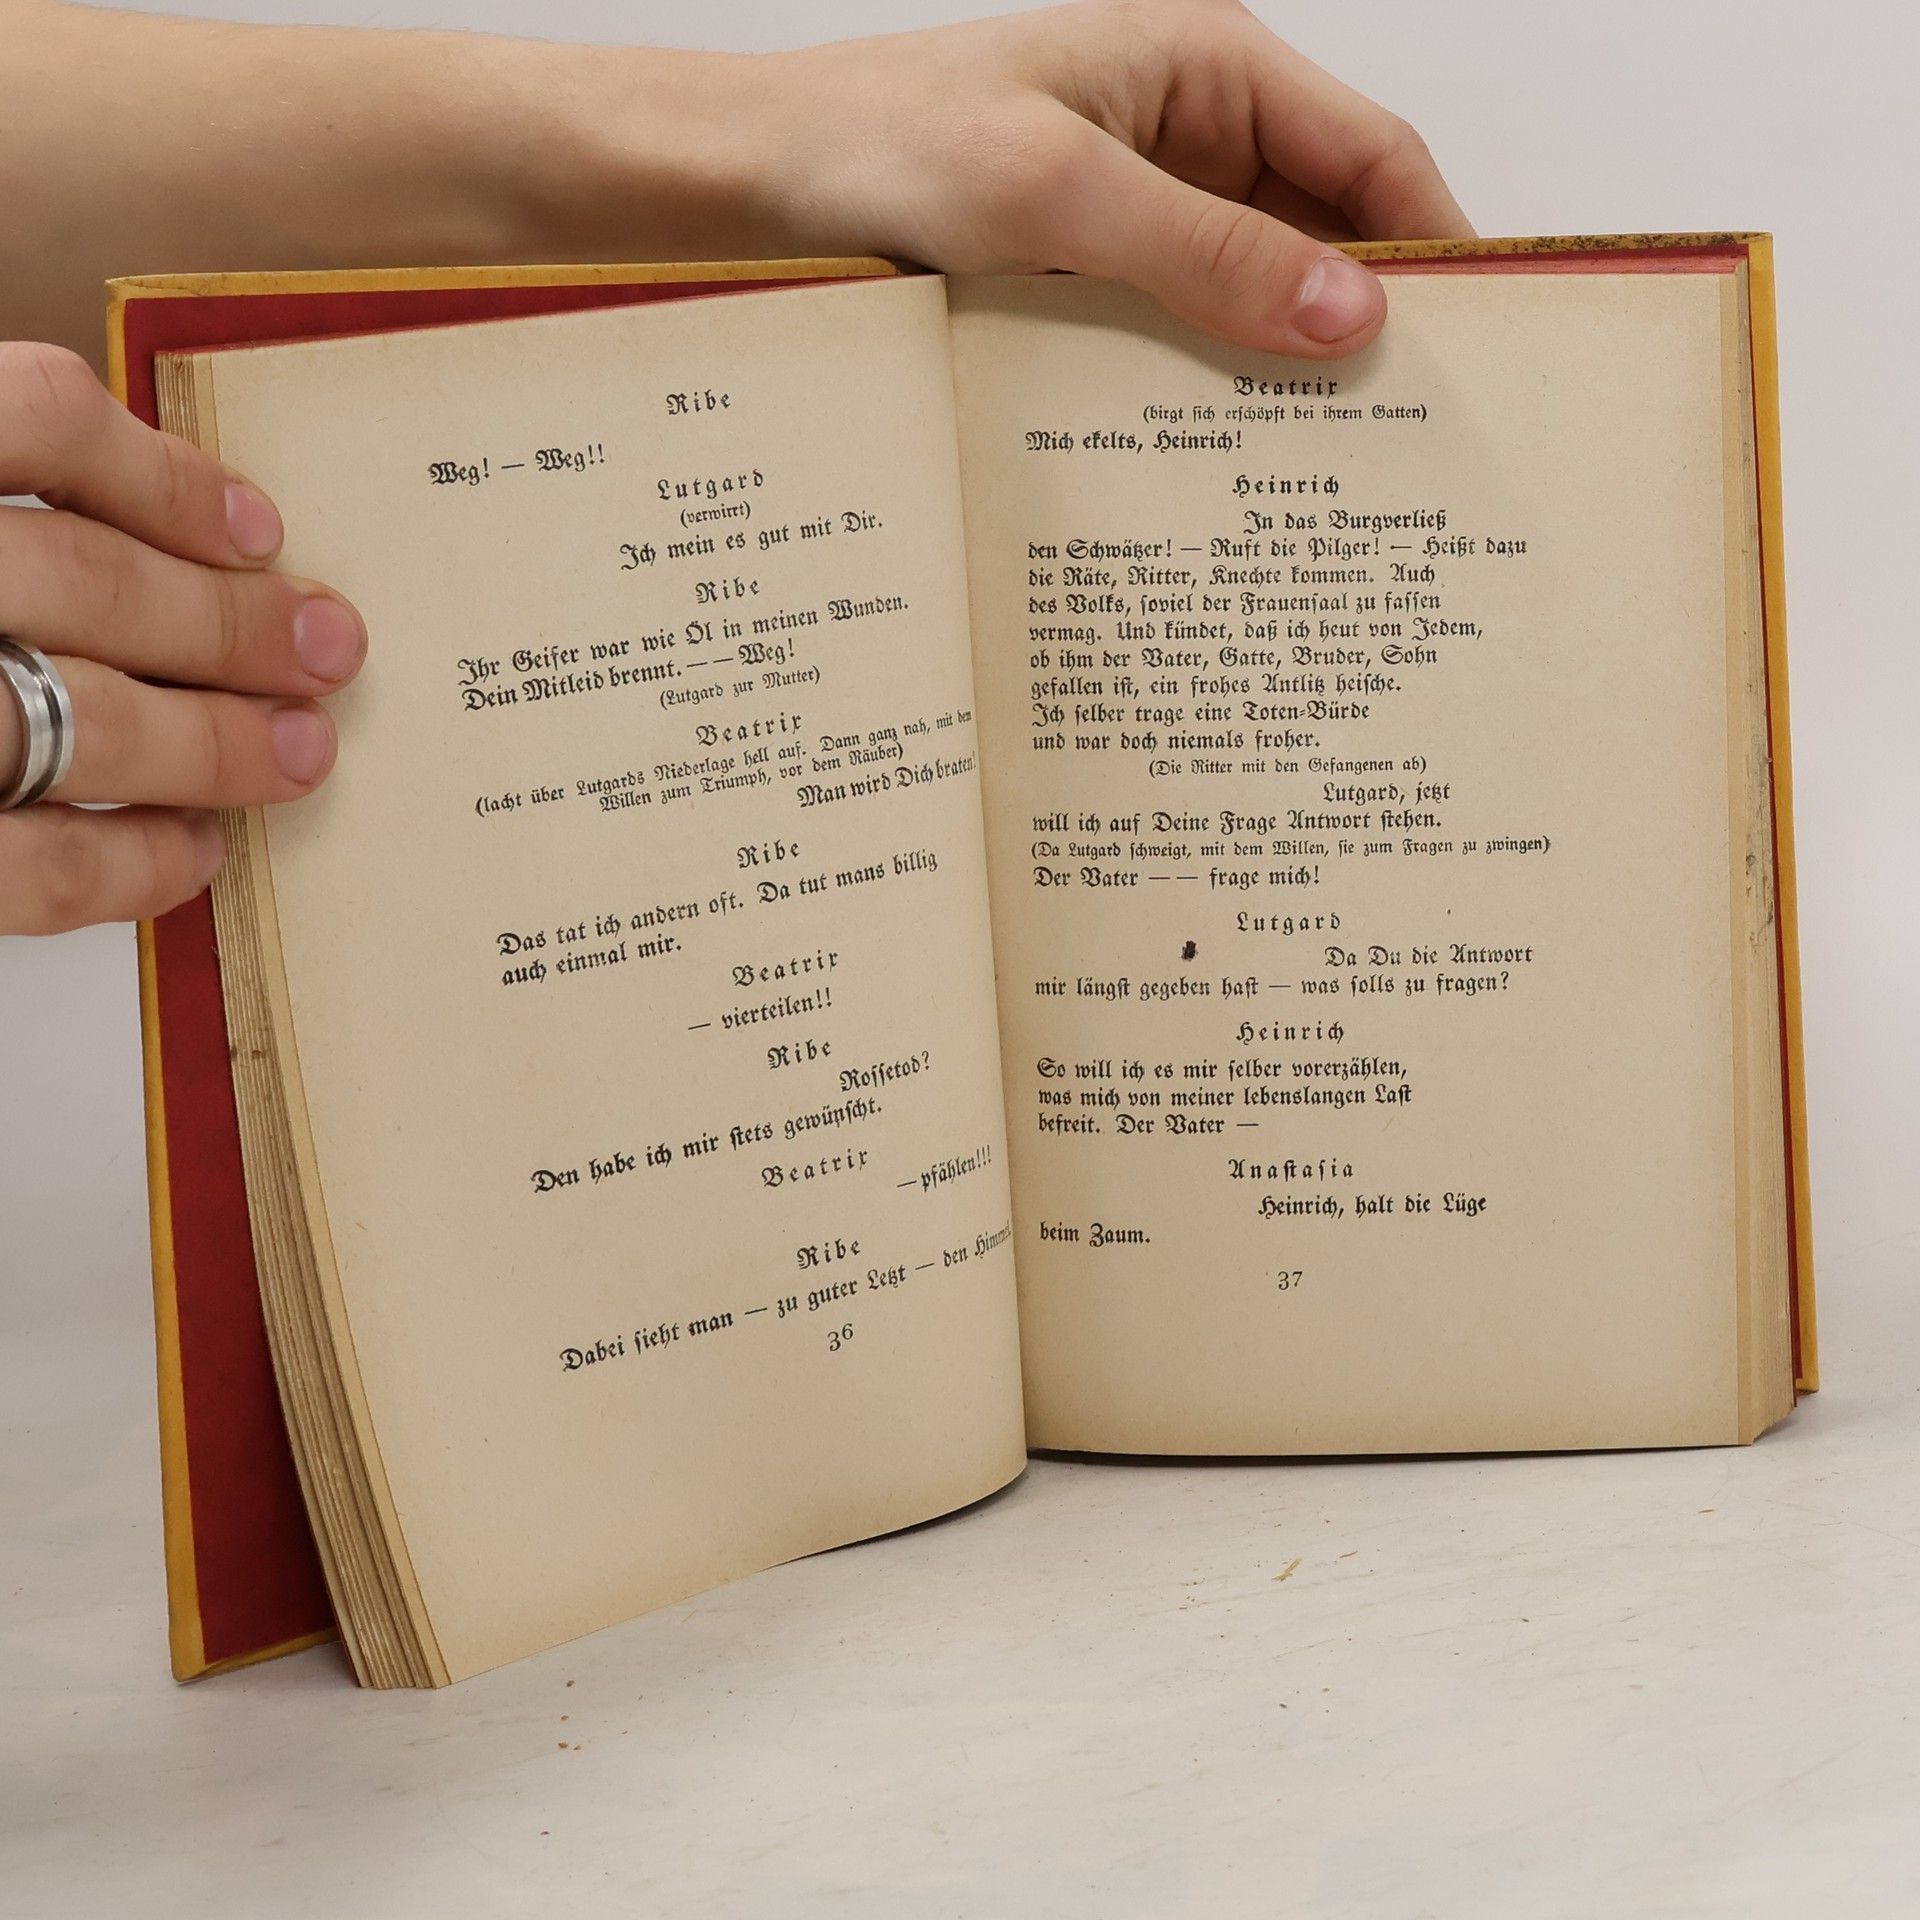 Ribe
Weg! — Weg!!
Lutgard
(verwirrt)
Ich mein es gut mit Dir.
Ribe
Ihr Geifer war wie Öl in meinen Wunden.
Dein Mitleid brennt. — — Weg!
(Lutgard zur Mutter)
Beatrix
(lacht über Lutgards Niederlage hell auf. Dann ganz nah, mit dem
Willen zum Triumph, vor dem Räuber)
Man wird Dich braten!
Ribe
Das tat ich andern oft. Da tut mans billig
auch einmal mir.
Beatrix
— vierteilen!!
Ribe
Rossetod?
Den habe ich mir stets gewünscht.
Beatrix
— pfählen!!!
Ribe
Dabei sieht man — zu guter Letzt — den
36
Beatrix
(birgt sich erschöpft bei ihrem Gatten)
Mich ekelts, Heinrich!
Heinrich
In das Burgverließ
den Schwätzer! — Ruft die Pilger! — Heißt dazu
die Räte, Ritter, Knechte kommen. Auch
des Volks, soviel der Frauensaal zu fassen
vermag. Und kündet, daß ich heut von Jedem,
ob ihm der Vater, Gatte, Bruder, Sohn
gefallen ist, ein frohes Antlitz heische.
Ich selber trage eine Toten-Bürde
und war doch niemals froher.
(Die Ritter mit den Gefangenen ab)
Lutgard, jetzt
will ich auf Deine Frage Antwort stehen.
(Da Lutgard schweigt, mit dem Willen, sie zum Fragen zu zwingen)
Der Vater — — frage mich!
Lutgard
Da Du die Antwort
mir längst gegeben hast — was solls zu fragen?
Heinrich
So will ich es mir selber vorerzählen,
was mich von meiner lebenslangen Last
befreit. Der Vater —
Anastasia
Heinrich, halt die Lüge
beim Zaum.
37